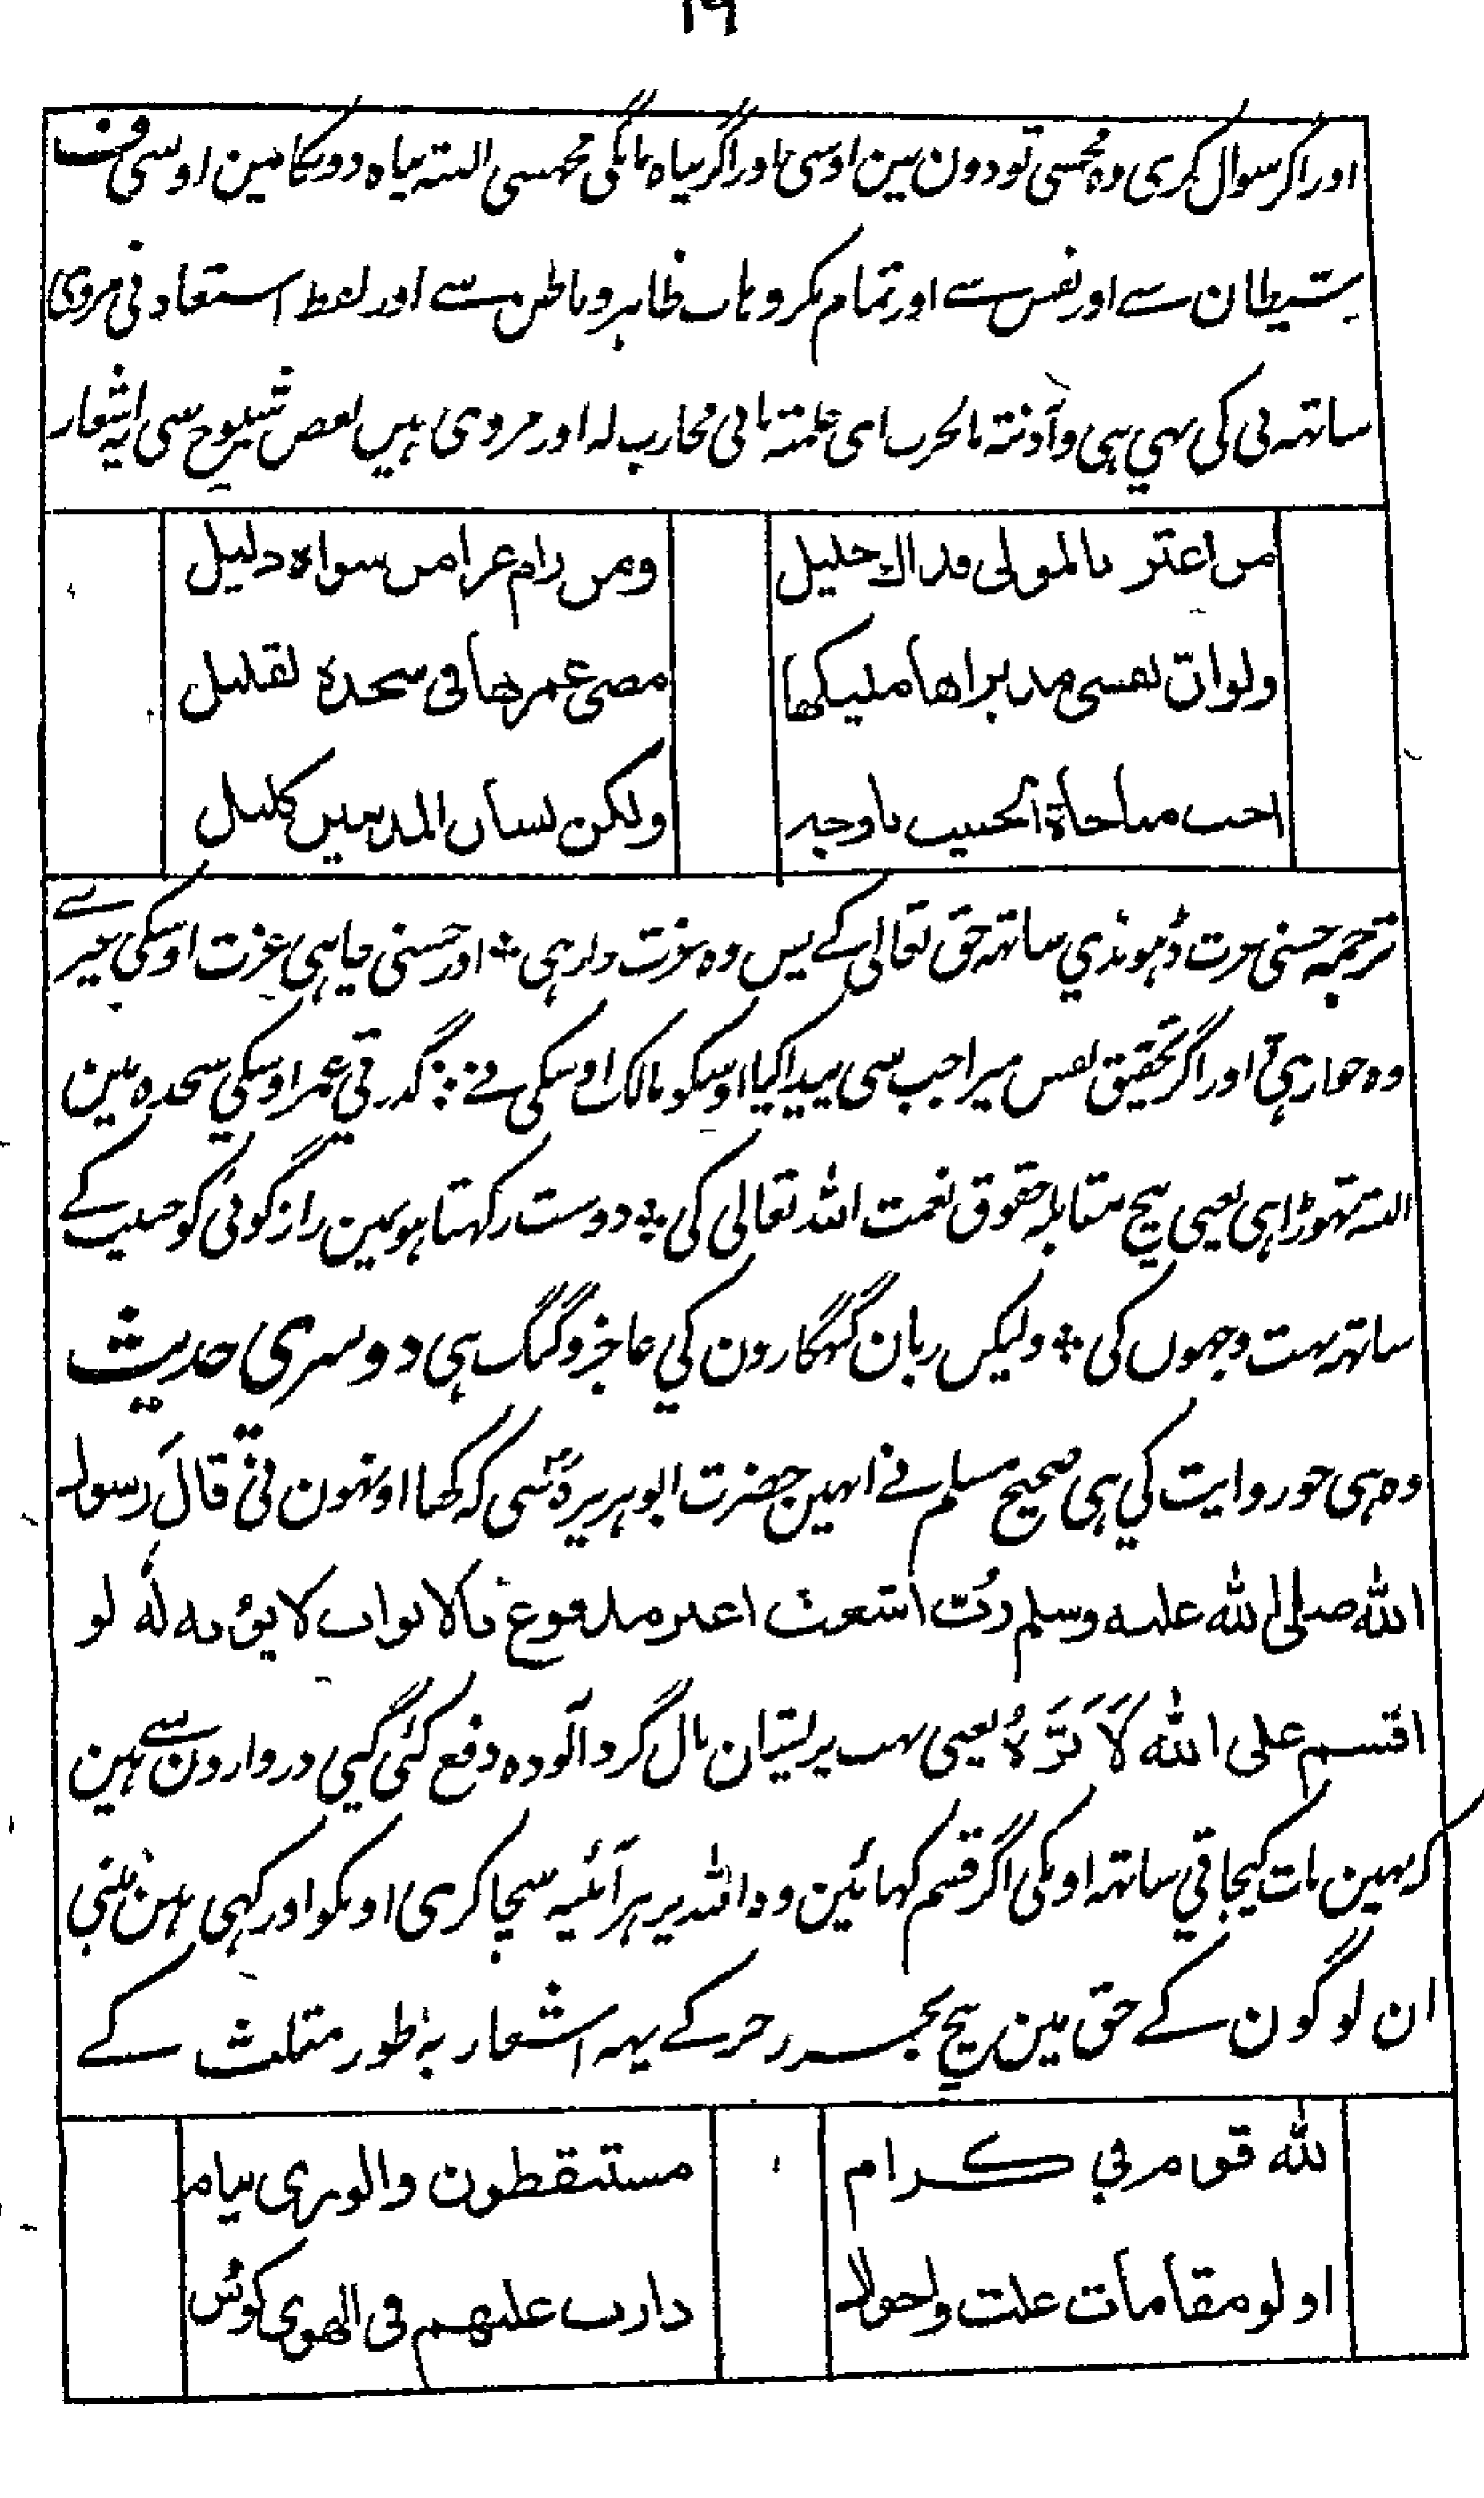 ۱۹
اور اگر سوال کری وہ مجھسی تو دون مین اوسی اور اگر پناہ مانگی مجھسی البتہ پناہ دونگا مین اوسی ف
شیطان سے اور نفس سے اور تمام مکروہات ظاہر و باطن سے اور لفظ استعاذنی مروی
ساتھ نی کی بھی ہی و آذنتہ بالحرب ای علمتہ بانی محارب لہ اور مروی ہیں بعض شیوخ سی یہ اشعار
من اعتز بالمولی فذاك جلیل
ومن رام عزا من سواه ذلیل
ولو ان نفسی مذ براها ملیکها
مضی عمرها فی سجدة لقلیل
احب مناجاة الحبیب باوجه
ولکن لسان المذنبین کلیل
ترجمہ جسنی عزت ڈہونڈی ساتھ حق تعالی کے پس وہ عزت دار ہی ٭ اور جسنی چاہی عزت اوسکی غیر سے
وہ خوار ہی اور اگر تحقیق نفس میرا جب سی پیدا کیا اوسکو مالک اوسکی نے ٭ گذرتی عمر اوسکی سجدہ مین
البتہ تہوڑا ہی یعنی بیچ مقابلہ حقوق نعمت اللہ تعالی کی ٭ دوست رکھتا ہو نمین راز گوئی کو حبیب کے
ساتھ بہت وجہوں کی ٭ ولیکن زبان گنہگارون کی عاجز و گنگ ہی دوسری حدیث
وہ ہی جو روایت کی ہی صحیح مسلم نے انہین حضرت ابوہریرہ سی کہ کہا اونہون نی قالَ رسول
الله صلی الله علیه وسلم رُبّ اشعث اغبر مدفوع بالابواب لا یؤبه لهٗ لو
اقسم علی الله لَاَبَرَّهٗ یعنی بہت پریشان بال گرد آلودہ دفع کئی گیی دروازون سے ہین
کہ نہین بات کیجاتی ساتھ اونکی اگر قسم کہائین وہ اللہ پر ہر آئینہ سچا کری اونکو اور کہی ہین
ان لوگون کے حق مین بیچ بحر رجز کے یہہ اشعار بطور مثلث کے
لله قوم کرام
مستیقظون والوری نیام
اولو مقامات علت واحوال
دارت علیهم فی الهوی کوٸس